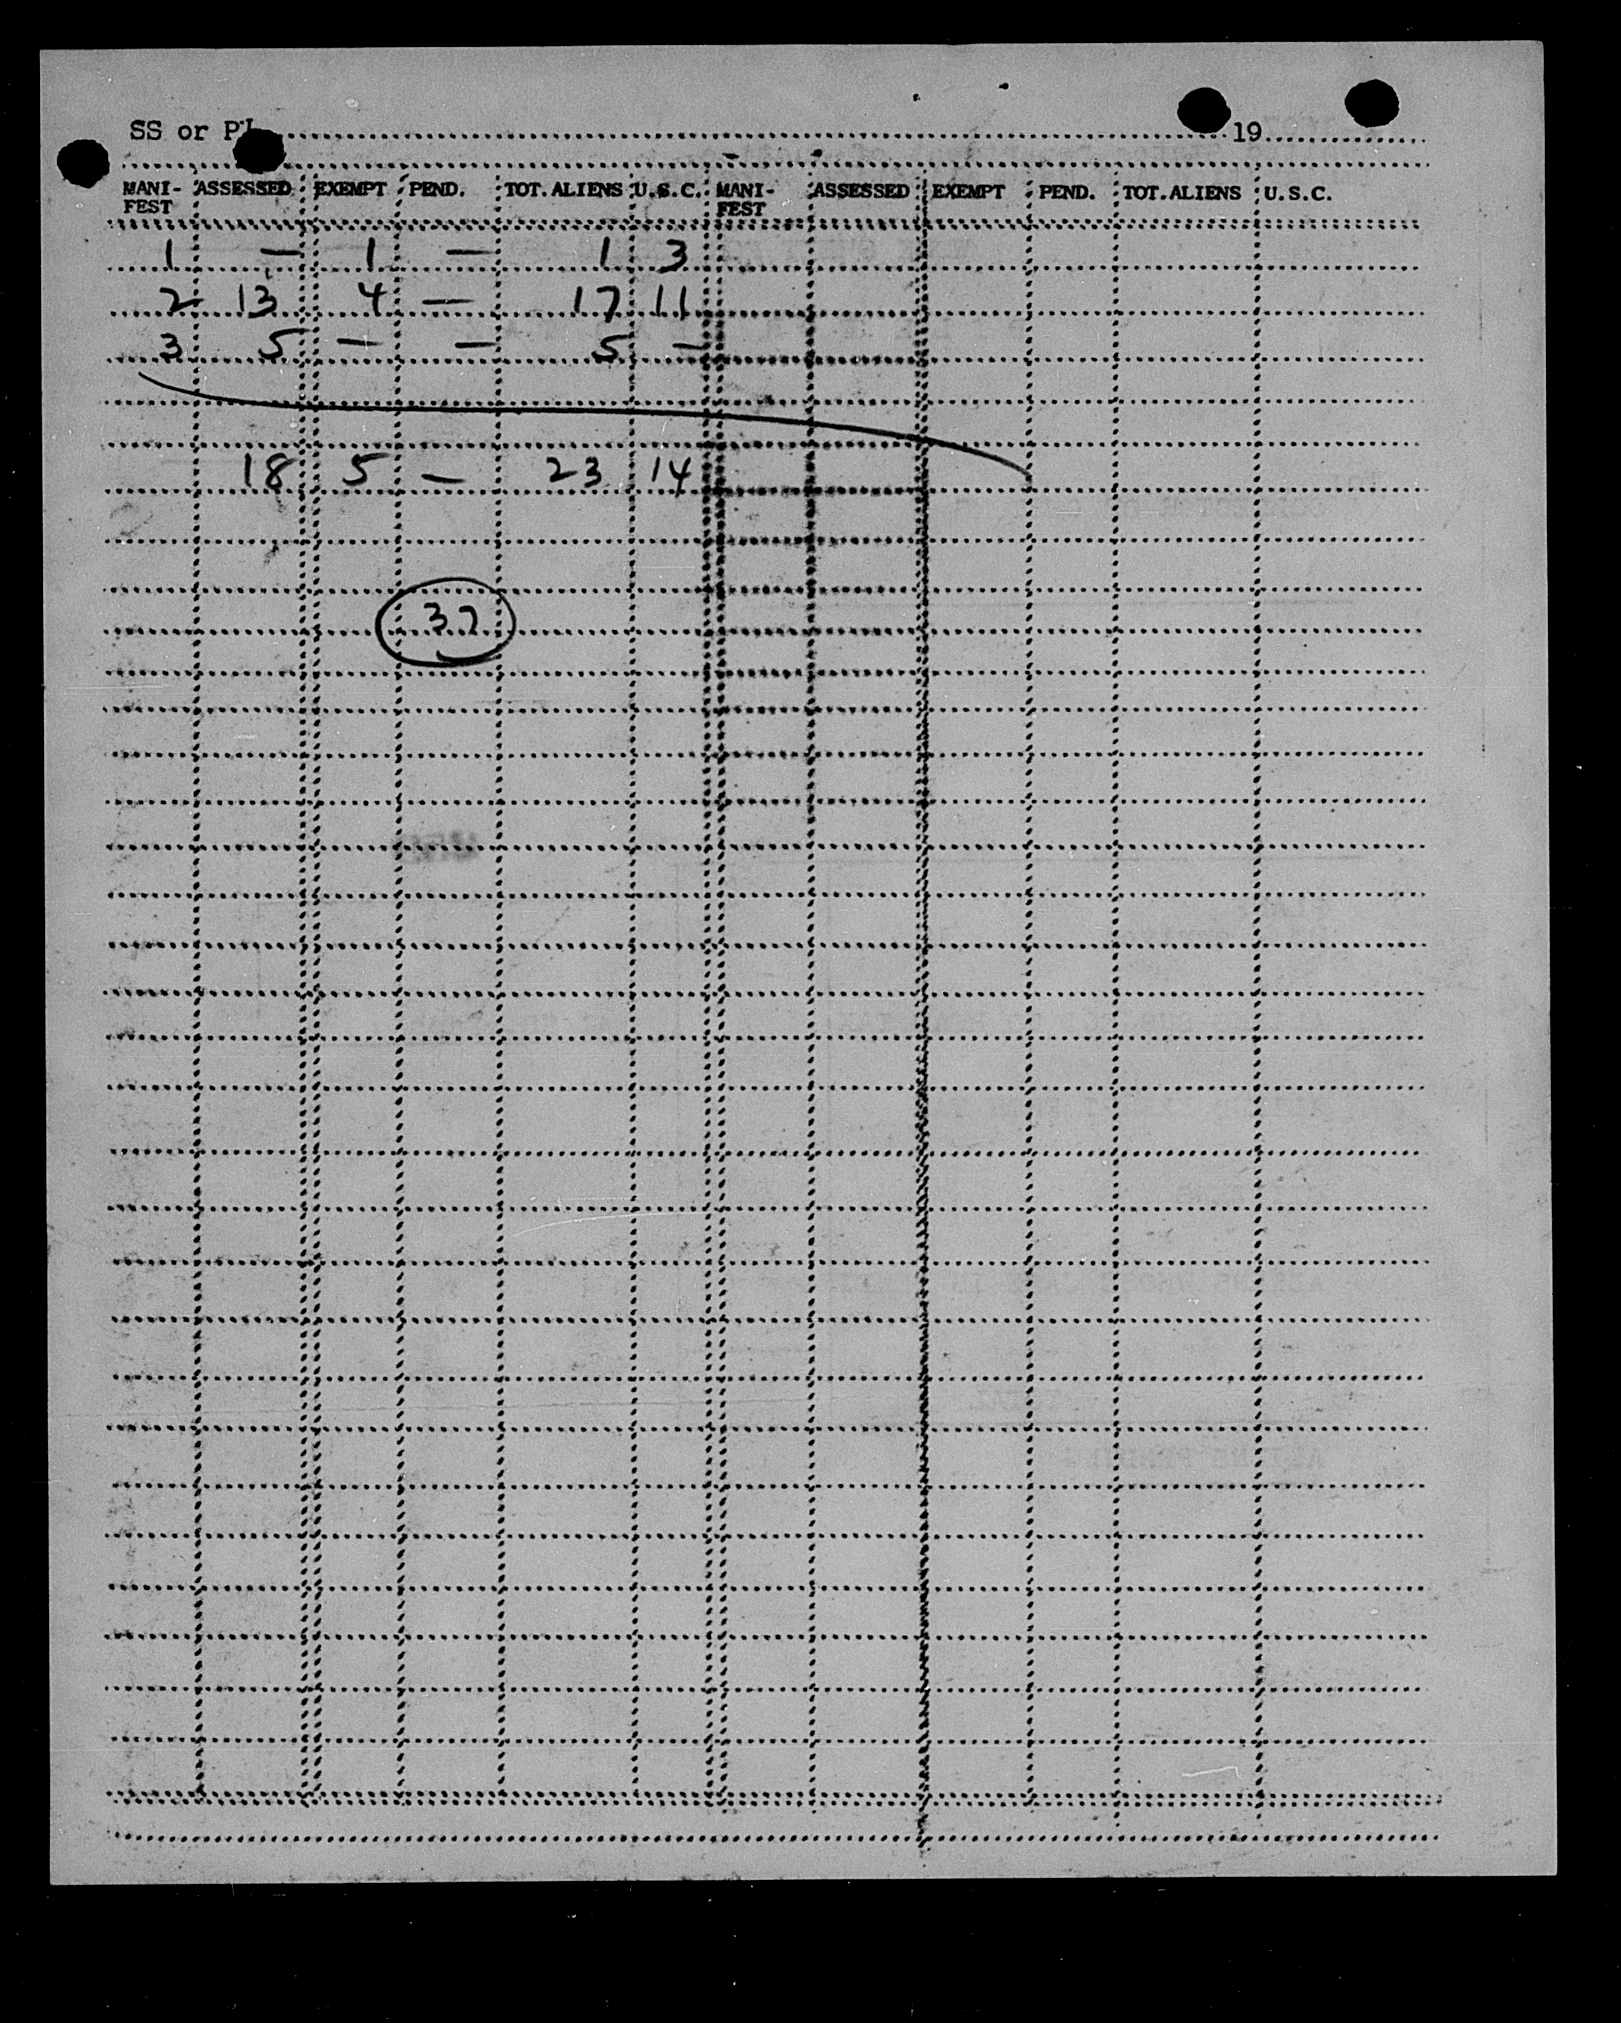 SS or PL 19
MANI- ASSESSED EXEMPT PEND. TOT. ALIENS U.S.C. MANI- ASSESSED EXEMPT PEND. TOT. ALIENS U.S.C.
FEST FEST
1 — 1 — 1 3
2 13 4 — 17 11
3 5 — — 5 —
18 5 — 23 14
37